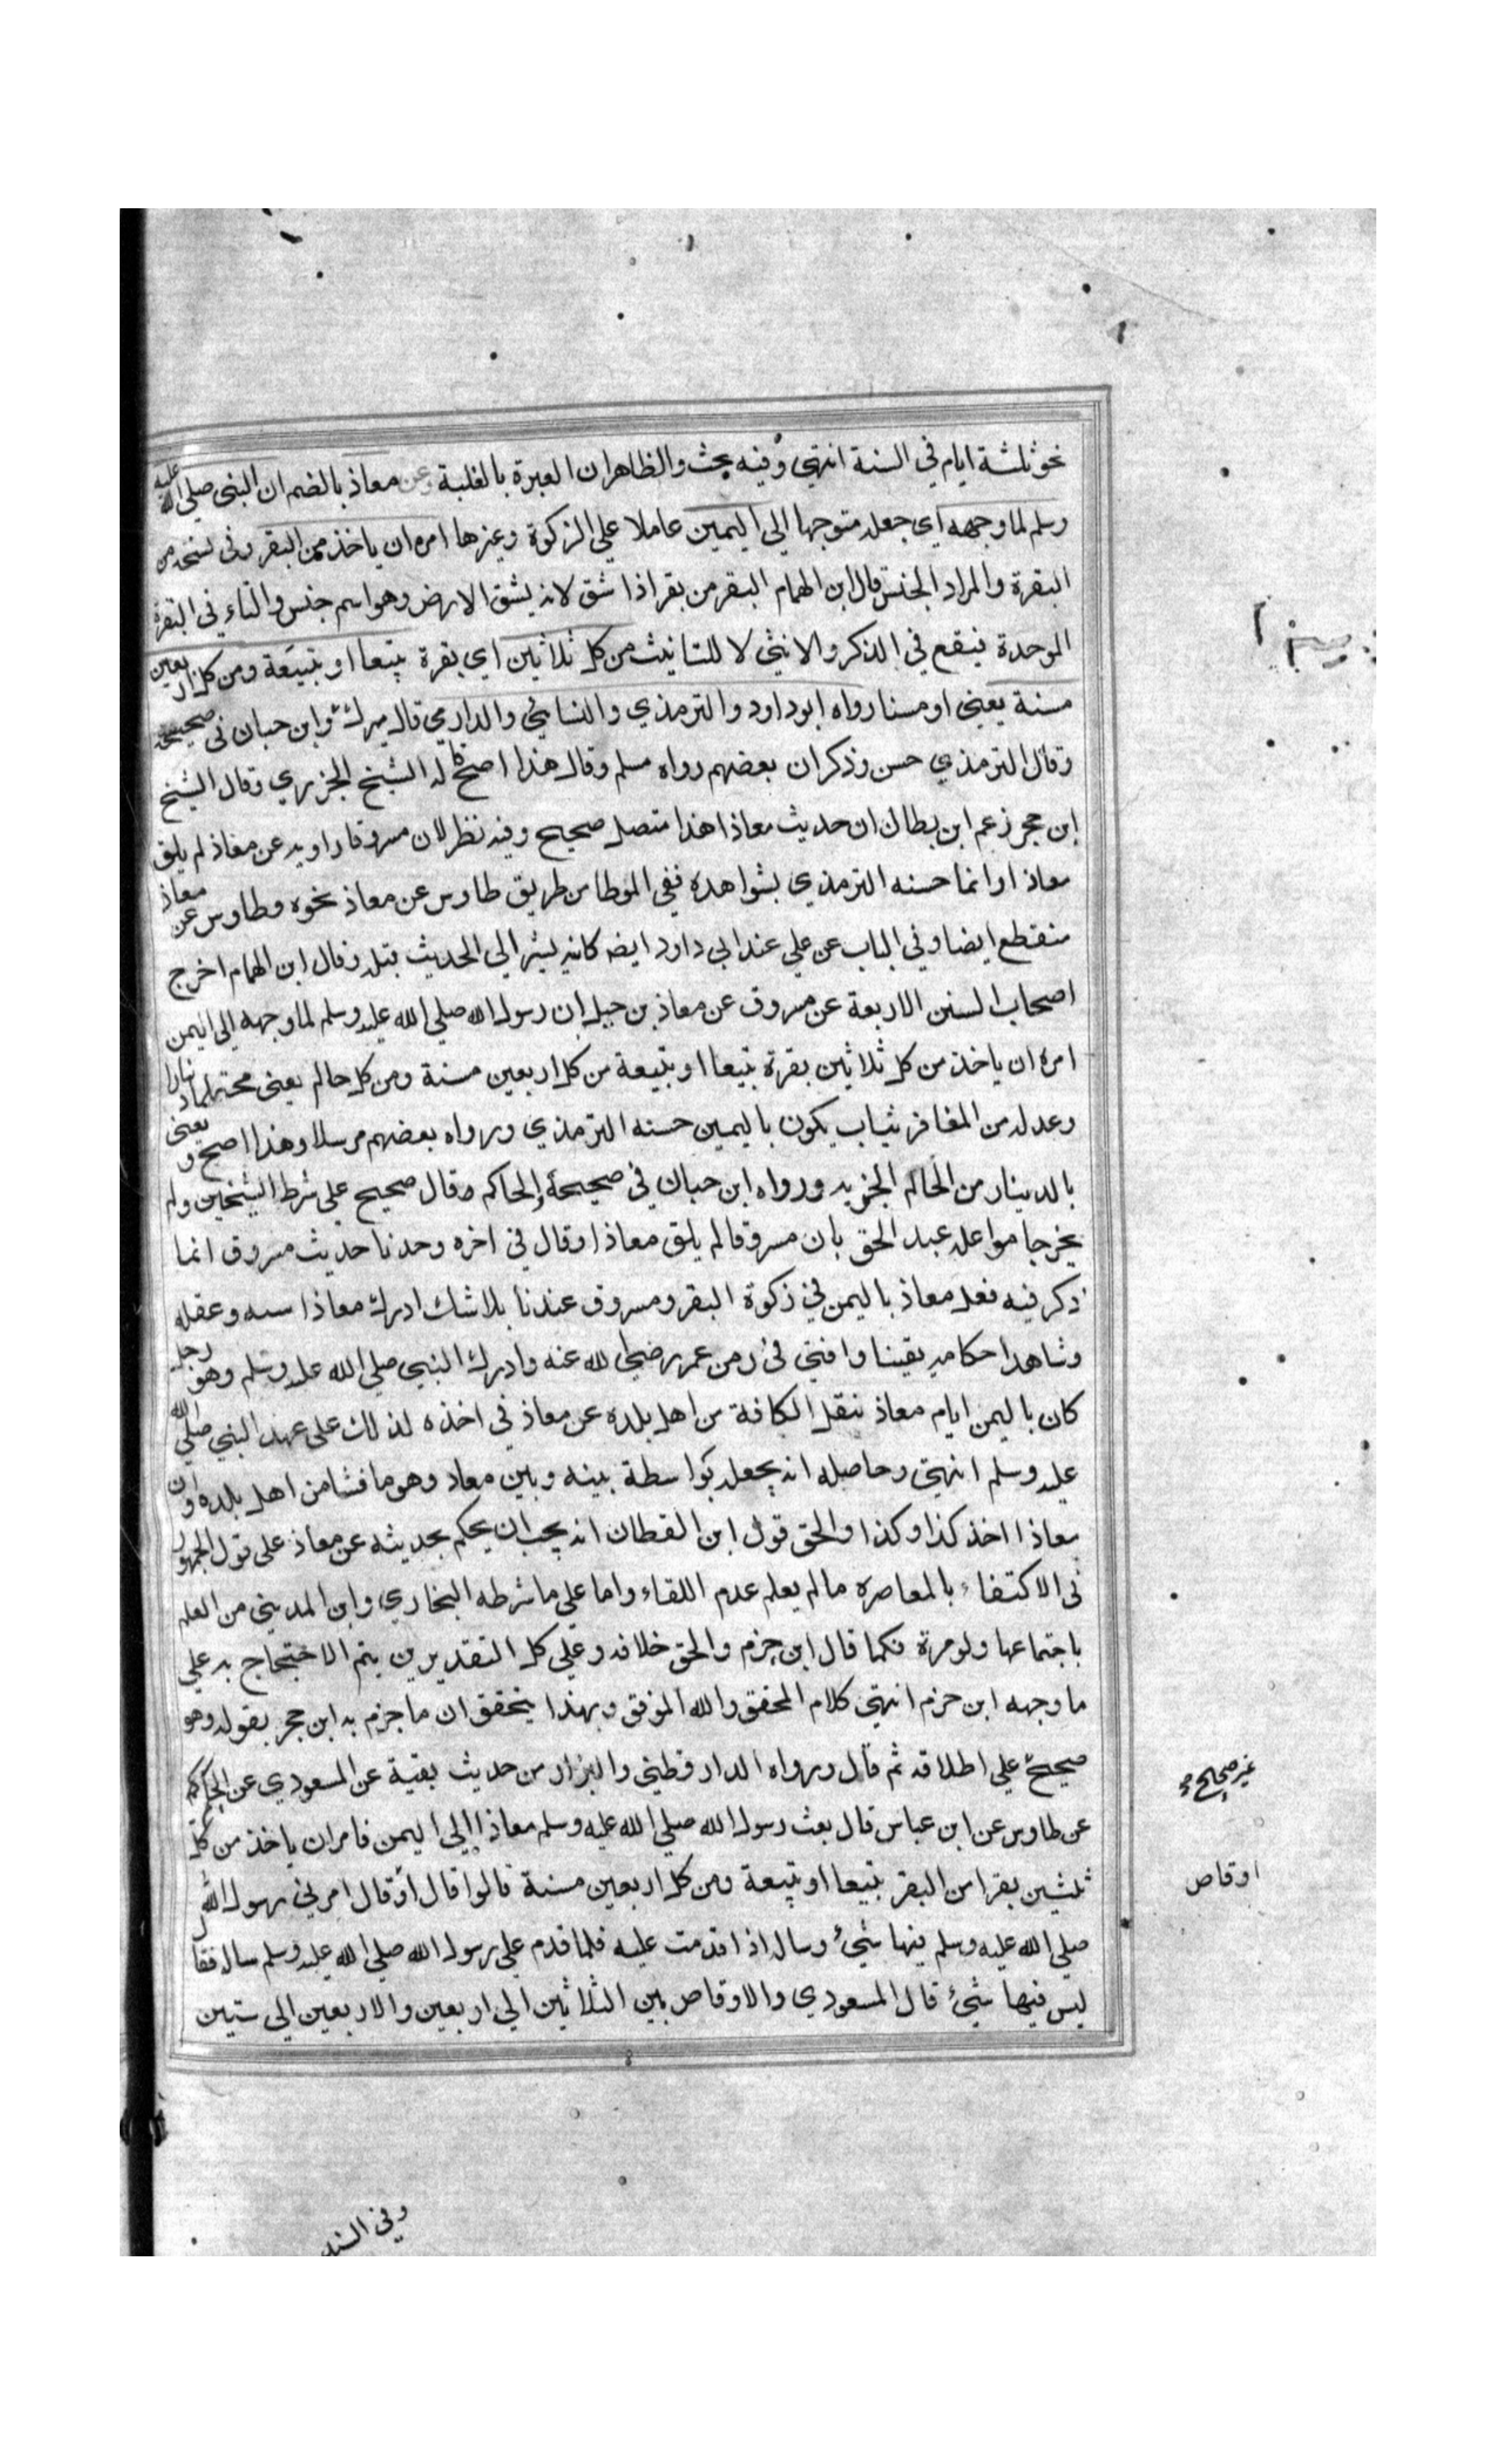 نحو ثلثة ايام في السنة انتهى وفيه بحث والظاهر ان العبرة بالغلبة وعن معاذ بالضم ان النبي صلى الله عليه
وسلم لما وجهه اي جعله متوجها الى اليمين عاملا على الزكوة وغيرها امره ان ياخذ من البقر وفي نسخة من
البقرة والمراد الجنس قال ابن الهمام البقر من بقر اذا شق لانه يشق الارض وهو اسم جنس والتاء في البقرة
الموحدة فيقع في الذكر والانثى لا للتانيث من كل ثلاثين اي بقرة تبيعا او تبيعة ومن كل اربعين
مسنة يعني او مسنا رواه ابوداود والترمذي والنسائي والدارمي قال ميرك وابن حبان في صحيحه
وقال الترمذي حسن وذكر ان بعضهم رواه مسلم وقال هذا اصح قاله الشيخ الجزري وقال الشيخ
ابن حجر زعم ابن بطال ان حديث معاذ اهذا متصل صحيح وفيه نظر لان مسروقا راويه عن معاذ لم يلق
معاذا وانما حسنه الترمذي بشواهده ففي الموطا من طريق طاوس عن معاذ نحوه وطاوس عن معاذ
منقطع ايضا وفي الباب عن علي عند ابي داود ايضه كانه يشير الى الحديث قبله وقال ابن الهمام اخرج
اصحاب السنن الاربعة عن مسروق عن معاذ بن جبل ان رسول الله صلى الله عليه وسلم لما وجهه الى اليمن
امره ان ياخذ من كل ثلاثين بقرة تبيعا او تبيعة من كل اربعين مسنة ومن كل حالم يعني محتلما دينارا
وعدله من المغافر ثياب يكون باليمين حسنه الترمذي ورواه بعضهم مرسلا وهذا اصح ويعني
بالدينار من الحالم الجزيه ورواه ابن حبان في صحيحه والحاكم وقال صحيح على شرط الشيخين ولم
يخرجا مواعله عبد الحق بان مسروقا لم يلق معاذا وقال في اخره وحدنا حديث مسروق انما
ذكر فيه فعل معاذ باليمن في زكوة البقر ومسروق عندنا بلاشك ادرك معاذا وعقله
وشاهد احكامه يقينا وافتى في زمن عمر رضي الله عنه وادرك النبي صلى الله عليه وسلم وهو رجل
كان باليمن ايام معاذ بنقل الكافة من اهل بلده عن معاذ في اخذه لذلك على عهد النبي صلى الله
عليه وسلم انتهى وحاصله انه يجعله بواسطة بينه وبين معاذ وهو ما فشا من اهل بلده ان
معاذا اخذ كذا وكذا والحق قول ابن القطان انه يجب ان يحكم بحديثه عن معاذ على قول الجمهور
في الاكتفاء بالمعاصره مالم يعلم عدم اللقاء واما على ما شرطه البخاري وابن المديني من العلم
باجتماعها ولو مرة فكما قال ابن حزم والحق خلافه وعلى كل التقديرين يتم الاحتجاج به على
ما وجهه ابن حزم انتهى كلام المحقق والله الموفق وبهذا يتحقق ان ما جزم به ابن حجر بقوله وهو
صحيح على اطلاقه ثم قال ورواه الدارقطني والبزار من حديث بقية عن المسعودي عن الحاكم
عن طاوس عن ابن عباس قال بعث رسول الله صلى الله عليه وسلم معاذا الى اليمن فامران ياخذ من كل
ثلثين بقرا من البقر تبيعا او تبيعة ومن كل اربعين مسنة قالوا قال او قال امرني رسول الله
صلى الله عليه وسلم فيها شيء وساله اذا قدمت عليه فلما قدم على رسول الله صلى الله عليه وسلم ساله فقا
ليس فيها شيء قال المسعودي والاوقاص بين الثلاثين الى اربعين والاربعين الى ستين
غير صحيح
اوقاص